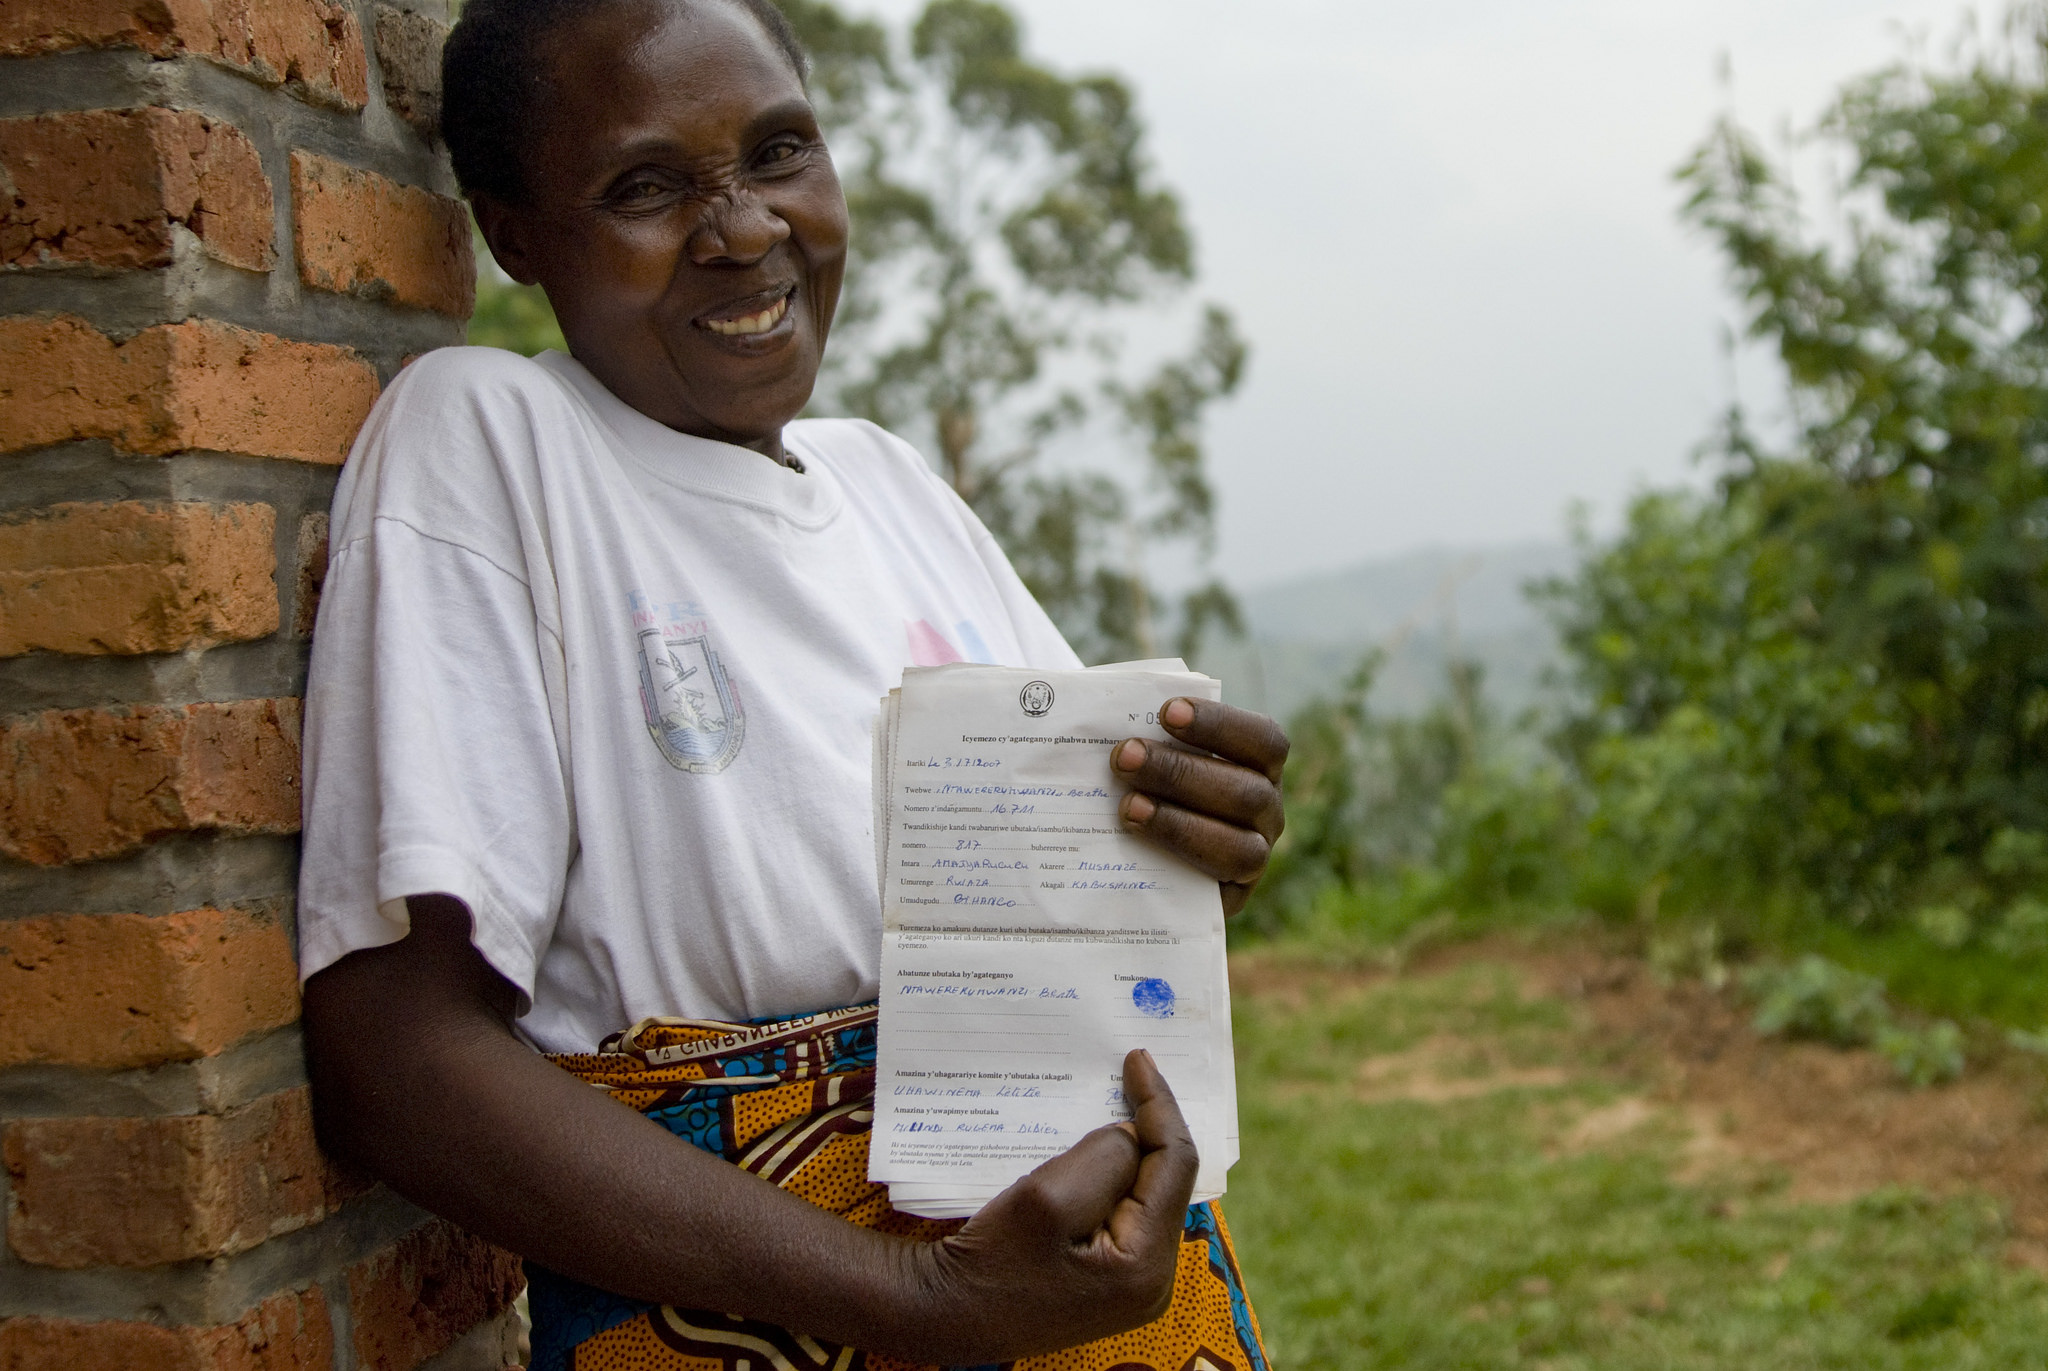 N° 05
Icyemezo cy'agateganyo gihabwa uwabaru
Itariki Le 3/7/2007
Twebwe NTAWERERUMWANZI Berthe
Nomero z'indangamuntu 16711
Twandikishije kandi twabaruriwe ubutaka/isambu/ikibanza bwacu bu
nomero 817 buherereye mu:
Intara AMAJYARUGURU Akarere MUSANZE
Umurenge RWAZA Akagali KABUSHINGE
Umudugudu GIHANGO
Turemeza ko amakuru dutanze kuri ubu butaka/isambu/ikibanza yanditswe ku ilisiti
y'agateganyo ko ari ukuri kandi ko nta kiguzi dutanze mu kubwandikisha no kubona iki
cyemezo.
Abatunze ubutaka by'agateganyo Umukono
NTAWERERUMWANZI Berthe
Amazina y'uhagarariye komite y'ubutaka (akagali) Um
UHAWINEMA Letitie
Amazina y'uwapimye ubutaka Umuk
MILINDI RUGEMA Didier
Iki ni icyemezo cy'agateganyo gishobora gukoreshwa mu
by'ubutaka nyuma y'uko amateka ateganywa n'ingingo
asohotse mu'Igazeti ya Leta
GUARANTEED